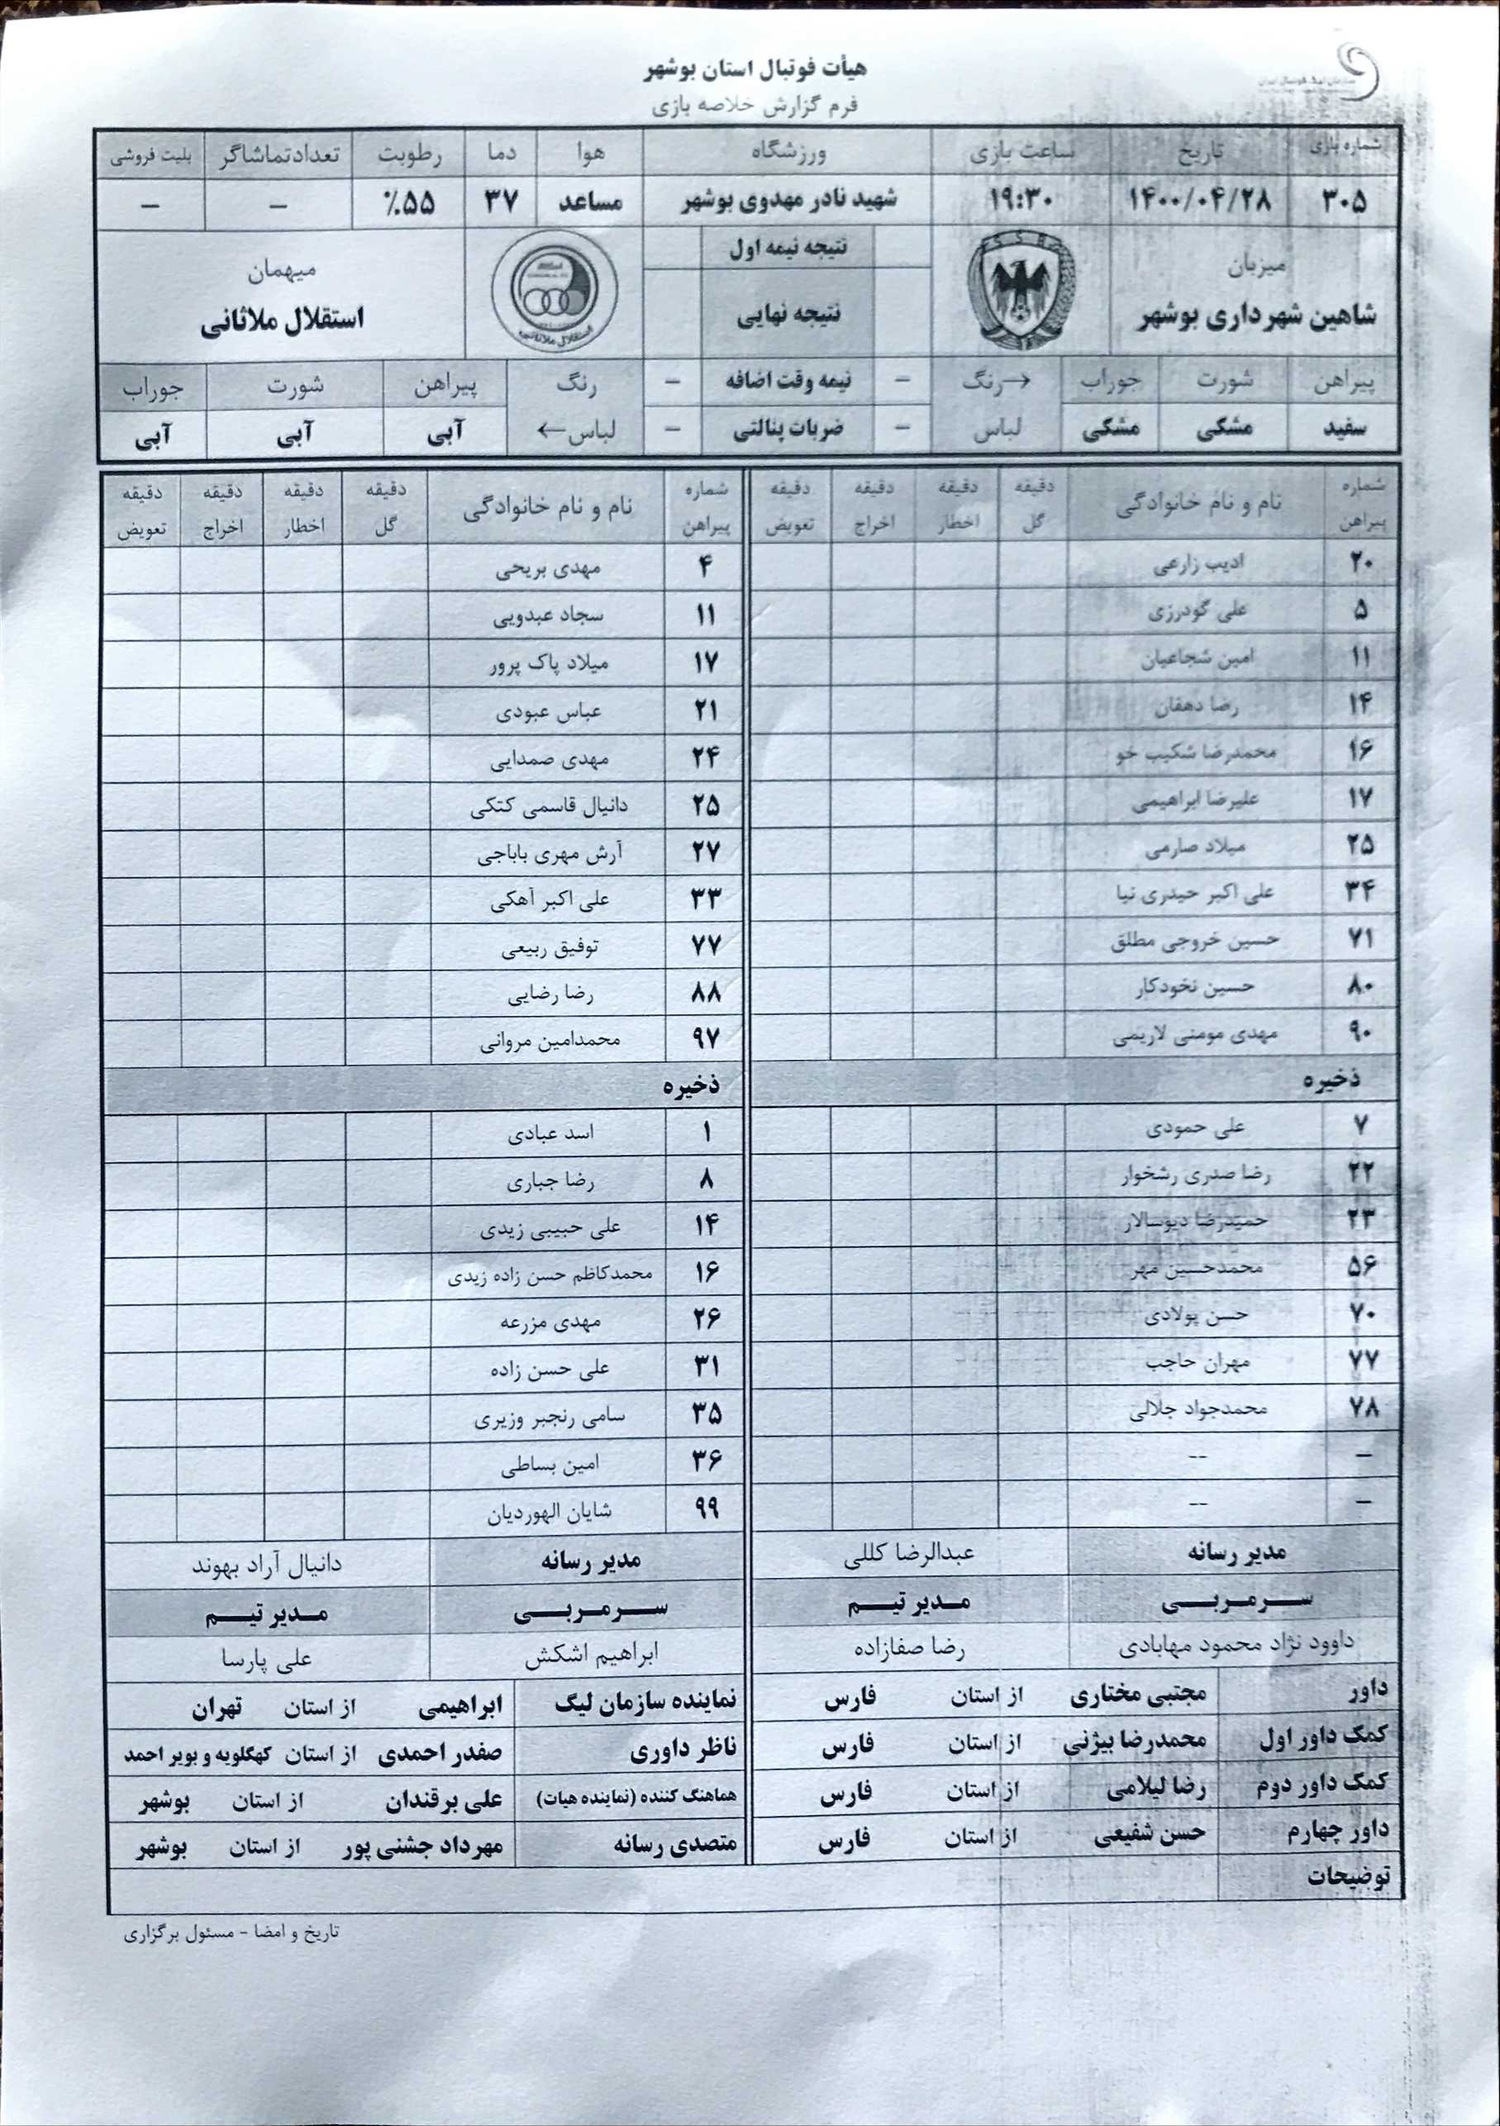 هیأت فوتبال استان بوشهر
فرم گزارش خلاصه بازی
شماره بازی تاریخ ساعت بازی ورزشگاه هوا دما رطوبت تعدادتماشاگر بلیت فروشی
۳۰۵ ۱۴۰۰/۰۴/۲۸ ۱۹:۳۰ شهید نادر مهدوی بوشهر مساعد ۳۷ ٪۵۵ – –
میزبان نتیجه نیمه اول میهمان
شاهین شهرداری بوشهر نتیجه نهایی استقلال ملاثانی
استقلال ملاثانی
پیراهن شورت جوراب →رنگ – نیمه وقت اضافه – رنگ پیراهن شورت جوراب
سفید مشکی مشکی لباس – ضربات پنالتی – لباس← آبی آبی آبی
شماره پیراهن نام و نام خانوادگی دقیقه گل دقیقه اخطار دقیقه اخراج دقیقه تعویض شماره پیراهن نام و نام خانوادگی دقیقه گل دقیقه اخطار دقیقه اخراج دقیقه تعویض
۲۰ ادیب زارعی ۴ مهدی بریحی
۵ علی گودرزی ۱۱ سجاد عبدویی
۱۱ امین شجاعیان ۱۷ میلاد پاک پرور
۱۴ رضا دهقان ۲۱ عباس عبودی
۱۶ محمدرضا شکیب خو ۲۴ مهدی صمدایی
۱۷ علیرضا ابراهیمی ۲۵ دانیال قاسمی کتکی
۲۵ میلاد صارمی ۲۷ آرش مهری باباجی
۳۴ علی اکبر حیدری نیا ۳۳ علی اکبر آهکی
۷۱ حسین خروجی مطلق ۷۷ توفیق ربیعی
۸۰ حسین نخودکار ۸۸ رضا رضایی
۹۰ مهدی مومنی لاریمی ۹۷ محمدامین مروانی
ذخیره ذخیره
۷ علی حمودی ۱ اسد عبادی
۲۲ رضا صدری رشخوار ۸ رضا جباری
۲۳ حمیدرضا دیوسالار ۱۴ علی حبیبی زیدی
۵۶ محمدحسین مهر ۱۶ محمدکاظم حسن زاده زیدی
۷۰ حسن پولادی ۲۶ مهدی مزرعه
۷۷ مهران حاجب ۳۱ علی حسن زاده
۷۸ محمدجواد جلالی ۳۵ سامی رنجبر وزیری
– -- ۳۶ امین بساطی
– -- ۹۹ شایان الهوردیان
مدیر رسانه عبدالرضا کللی مدیر رسانه دانیال آراد بهوند
ســرمربــی مـدیر تیــم ســرمربــی مـدیر تیــم
داوود نژاد محمود مهابادی رضا صفازاده ابراهیم اشکش علی پارسا
داور مجتبی مختاری از استان فارس نماینده سازمان لیگ ابراهیمی از استان تهران
کمک داور اول محمدرضا بیژنی از استان فارس ناظر داوری صفدر احمدی از استان کهگلویه و بویر احمد
کمک داور دوم رضا لیلامی از استان فارس هماهنگ کننده (نماینده هیات) علی برقندان از استان بوشهر
داور چهارم حسن شفیعی از استان فارس متصدی رسانه مهرداد جشنی پور از استان بوشهر
توضیحات
تاریخ و امضا - مسئول برگزاری